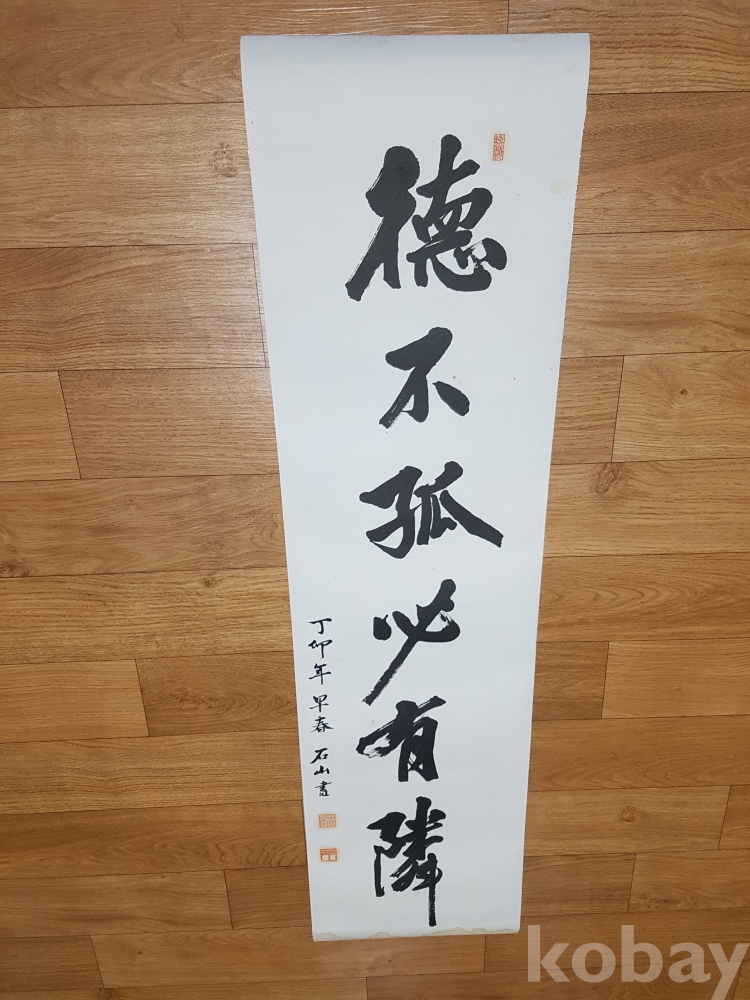 德不孤必有隣
丁卯年早春 石山書
kobay